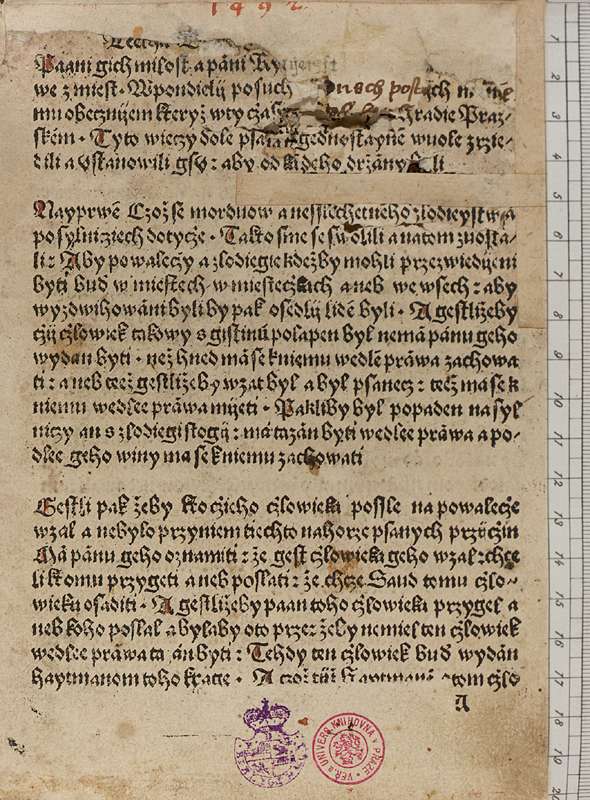 1492
Paani gich milost a pāni Ry
we z miest · Wpondielij po such dnech postnych
mu obecznijem kteryž w ty czasy Hradie Praz-
ském · Tyto wieczy dole psané gednostaynē wuole zrzie-
dili a vstanowili gsú : aby od každeho držány byli
Nayprwē Czož se morduow a nessliechetnēho zlodieystwa
po sylniziech dotycże · Takto sme se swolili a na tom zuosta-
li : Aby powaleczy a zlodiegie kdežby mohli przezwiedijeni
byti buď w miestech w miestecżkach aneb we wsech : aby
wyzdwihowāni byli by pak osedlij lidē byli · A gestližeby
cżij cżlowiek takowy s gistinū polapen byl nemā pānu geho
wydān byti · než hned mā se k niemu wedlē prāwa zachowa
ti : aneb teež gestližeby wzat byl a byl psanecz : teež ma se k
niemu wedlee prāwa mijeti · Pakliby byl popaden na syl
niczy an s zlodiegi stogij : ma tazān byti wedlee prāwa a po-
dlee geho winy ma se k niemu zachowati
Gestli pak žeby kto cżieho cżlowieka possle na powalecże
wzal a nebylo przy niem tiechto nahorze psanych przijcżin
Mā pānu geho oznamiti : že gest cżlowieka geho wzal : chce
li k tomu przygeti aneb poslati : že chcze Saud tomu cżlo-
wieku osaditi · A gestližeby paan toho cżlowieka przygel a
neb koho poslal a bylaby oto prze : žeby nemiel ten cżlowiek
wedlee prāwa tazān byti : Tehdy ten cżlowiek buď wydān
haytmanom toho krage · A czož tijž haytmanē o tom cżlo
A
UNIVERS. KNIHOVNA V PRAZE · VEŘ.